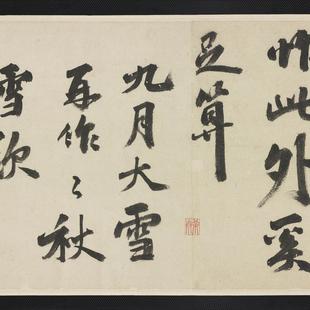 此外奚
足算
九月大雪
再作〻秋
雪歌